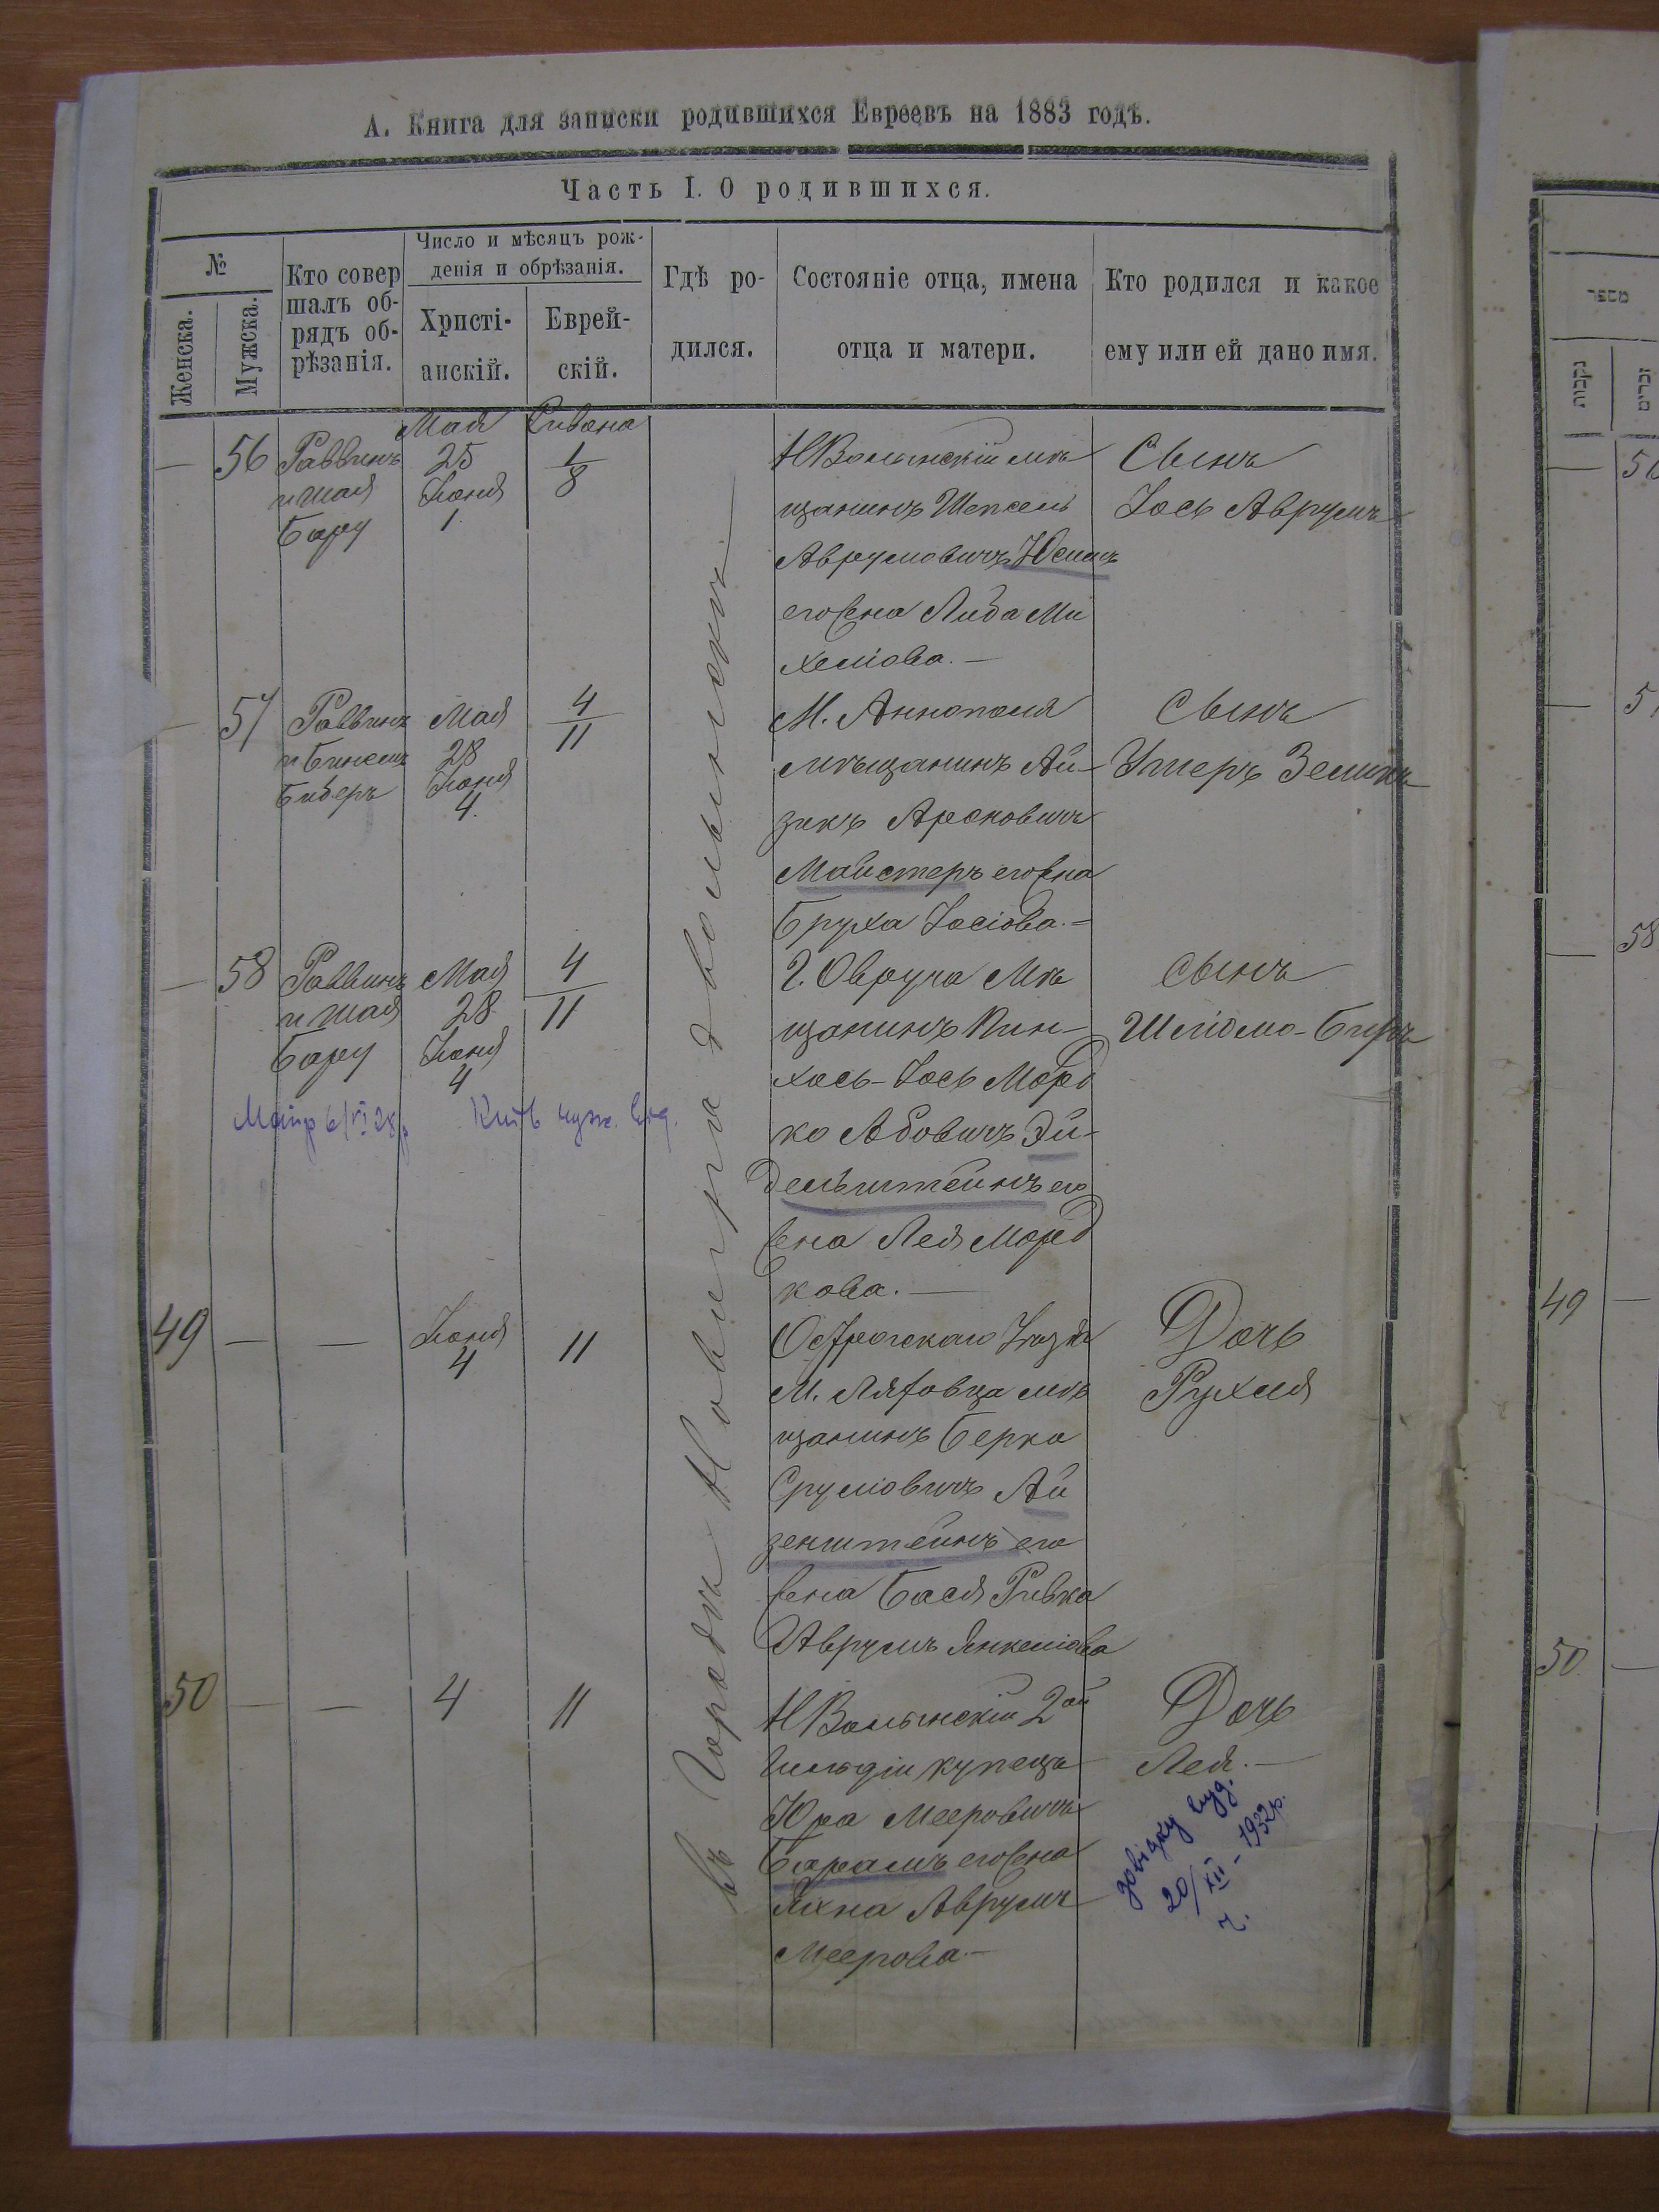 А. Книга для записки родившихся Евреевъ на 1883 годъ.
Часть I. О родившихся.
№
Женска.
Мужска.
Кто совер
шалъ об-
рядъ об-
рѣзанія.
Число и мѣсяцъ рож-
денія и обрѣзанія.
Христі-
анскій.
Еврей-
скій.
Гдѣ ро-
дился.
Состояніе отца, имена
отца и матери.
Кто родился и какое
ему или ей дано имя.
въ Городѣ Новоградволынскѣ
— 56
Раввинъ
и Шая
Бару
Мая
25
Іюня
1.
Сивана
1
8
НВолынскій мѣ
щанинъ Шепсель
Аврумовичъ
его жена Либа Ми
хелiова. —
Сынъ
Іось Аврумъ
— 57
Раввинъ
и Бинемъ
Биберъ
Мая
28
Іюня
4.
4
11
М. Аннополя
мѣщанинъ Ай-
зикъ Ароновичъ
Майстеръ его жена
Бруха Іосіова. —
Сынъ
Умеръ Зеликъ
— 58
Раввинъ
и Шая
Бару
Мая
28
Іюня
4
4
11
Г. Овруча мѣ
щанинъ Пин-
хось-Іось Морд
ко Абовичъ Эй-
дельштейнъ его
жена Лея Морд
кова. —
Сынъ
Шліомо-Беръ
49 — —
Іюня
4
11
Острогскаго Уѣзда
М. Ляховца мѣ
щанинъ Берко
Срулiовичъ Ай
зенштейнъ его
жена Бася Ривка
Аврумъ Янкеліова
Дочь
Рухля
50 — —
4
11
НВолынскій 2ой
Гильдіи купецъ
Юра Мееровичъ
Барамъ его жена
Яхна Аврумъ
Меерова. —
Дочь
Лея. —
довідку вид.
20/XII - 1932р.
מספר
נקבות
זכרים
— 56
— 57
— 58
49 —
50 —